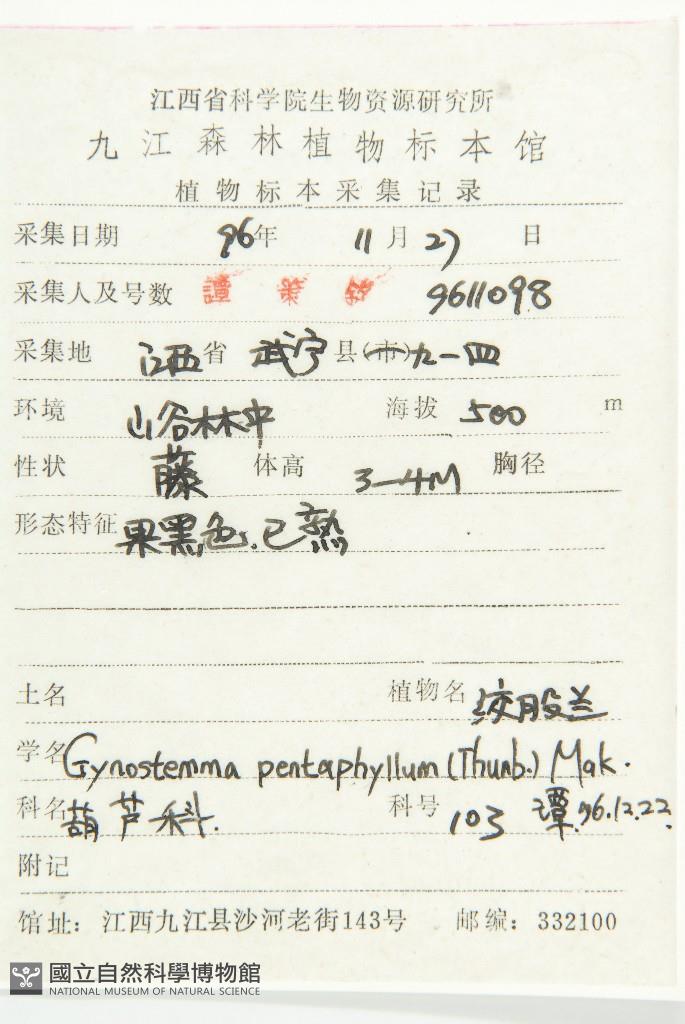 江西省科学院生物资源研究所
九江森林植物标本馆
植物标本采集记录
采集日期 96年 11月 27 日
采集人及号数 譚策铭 9611098
采集地 江西省 武宁县(市)九一四
环境 山谷林中 海拔 500 m
性状 藤 体高 3—4M 胸径
形态特征 果黑色,已熟
土名 植物名 绞股兰
学名 Gynostemma pentaphyllum (Thunb.) Mak.
科名 葫芦科. 科号 103 譚.96.12.22.
附记
馆址：江西九江县沙河老街143号 邮编：332100
國立自然科學博物館
NATIONAL MUSEUM OF NATURAL SCIENCE